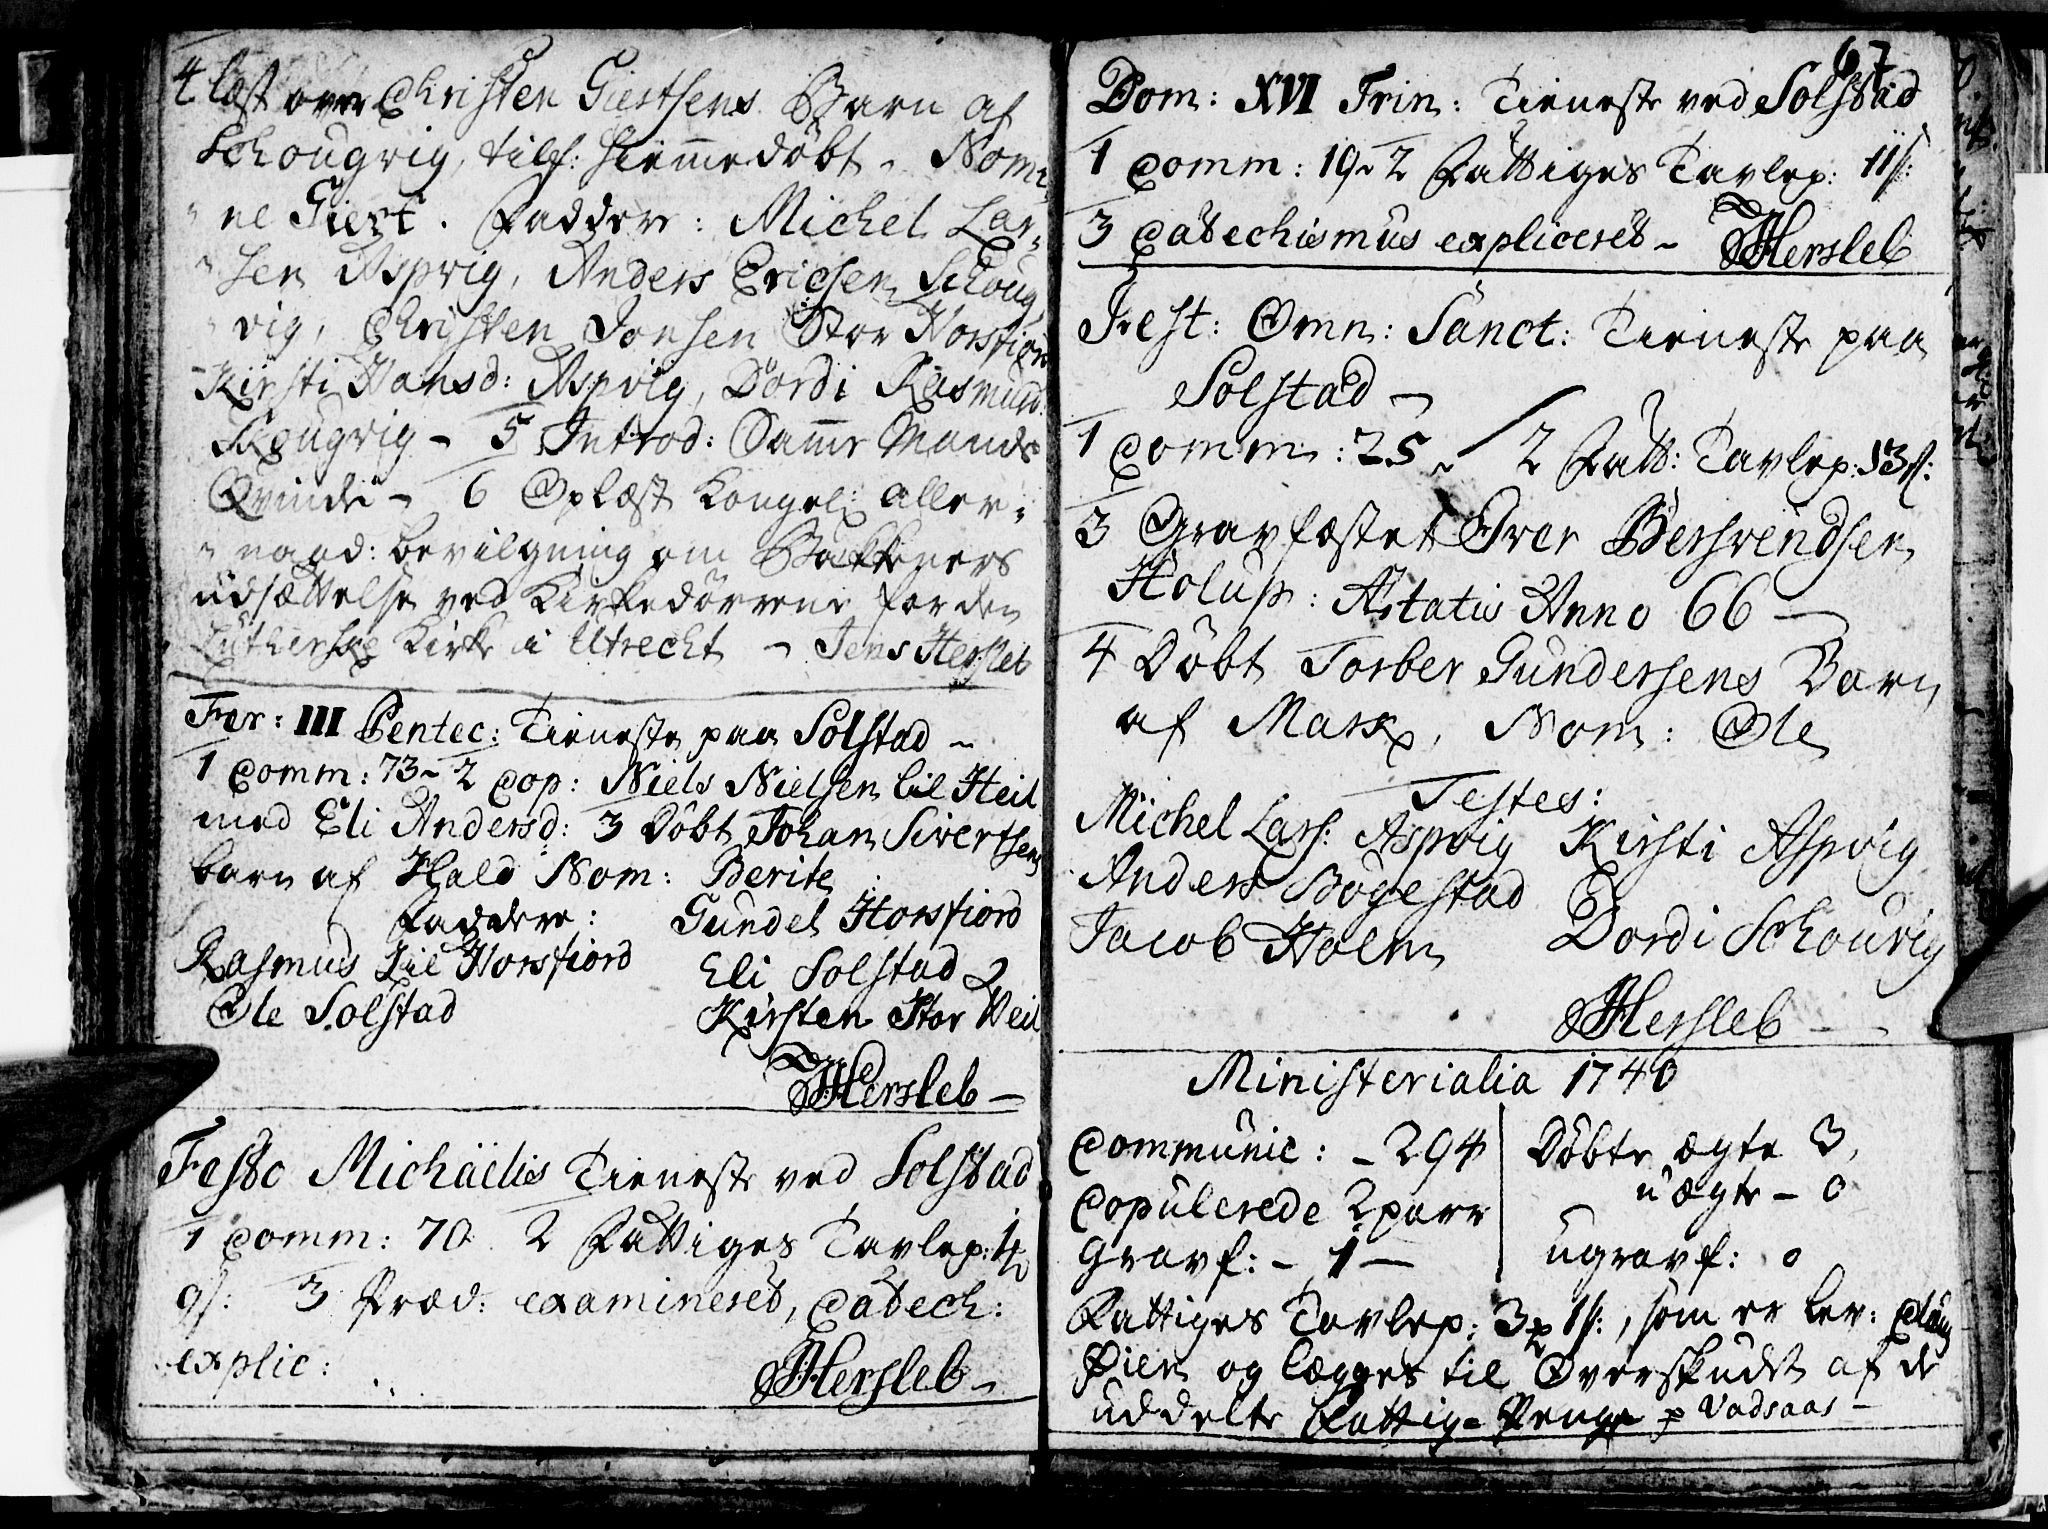 4 læst over Christen Giertsens Barn af
Schougvig, tilf: hiemmedöbt - Nomi-
ne Giert. Faddere: Michel Lar-
sen Aspvig, Anders Ericsen Schoug
vig, Christen Jonsen Stor Horsfiord
Kirsti Hansd: Aspvig, Dordi Rasmusd:
Skougvig - 5 Introd: Samme Mands
Qvinde - 6 Oplæst Kongel: aller-
naad: bevilgning om Bækkeners
udsættelse ved Kirkedörrene for den
Lutherske Kirke i Utrecht - Jens Hersleb
Fer: III Pentec: Tieneste paa Solstad -
1 Comm: 73 - 2 Cop: Niels Nielsen lil Heil
med Eli Andersd: 3 Döbt Johan Sivertsens
barn af Hald Nom: Berite
Faddere: Gundel Horsfiord
Rasmus Lil Horsfiord Eli Solstad
Ole Solstad Kirsten Stor Heil
JHersleb -
Festo Michaëlis Tieneste ved Solstad
1 Comm: 70 2 Fattiges Tavlep: 1
9s: 3 Præd: examineret, Catech:
explic:
JHersleb -
67
Dom: XVI Trin: Tieneste ved Solstad
1 Comm: 19 - 2 Fattiges Tavlep: 11s:
3 Catechismus expliceret - JHersleb
Fest: Omn: Sanct: Tieneste paa
Solstad -
1 Comm: 25 - 2 Fatt: Tavlep: 13s:
3 Gravfæstet Iver Bersvendsen
Holup: Ætatis Anno 66 -
4 Döbt Torber Gundersens Barn
af Mark, Nom: Ole
Testes:
Michel Lars: Aspvig Kirsti Aspvig
Anders Bögestad Dordi Schouvig
Jacob Holm
JHersleb -
Ministerialia 1740
Communic: - 294 Döbte ægte 3,
uægte - 0
Copulerede 2 parr
Gravf: - 1 - ugravf: 0
Fattiges Tavlep: 3 1s:, som er lev:
Øien og lægges til Overskudet af de
uddelte Fattig-Penge p Vadsaas -